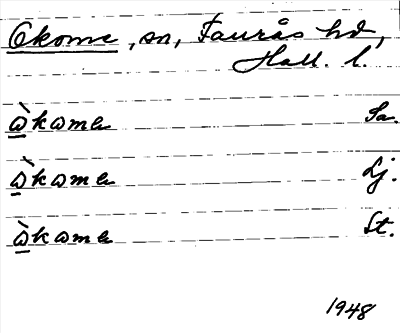 Okome, sn, Faurås hd,
Hall. l.
ὼkωmα Sa.
ὼkωmα Lj.
ὼkωmα St.
1948